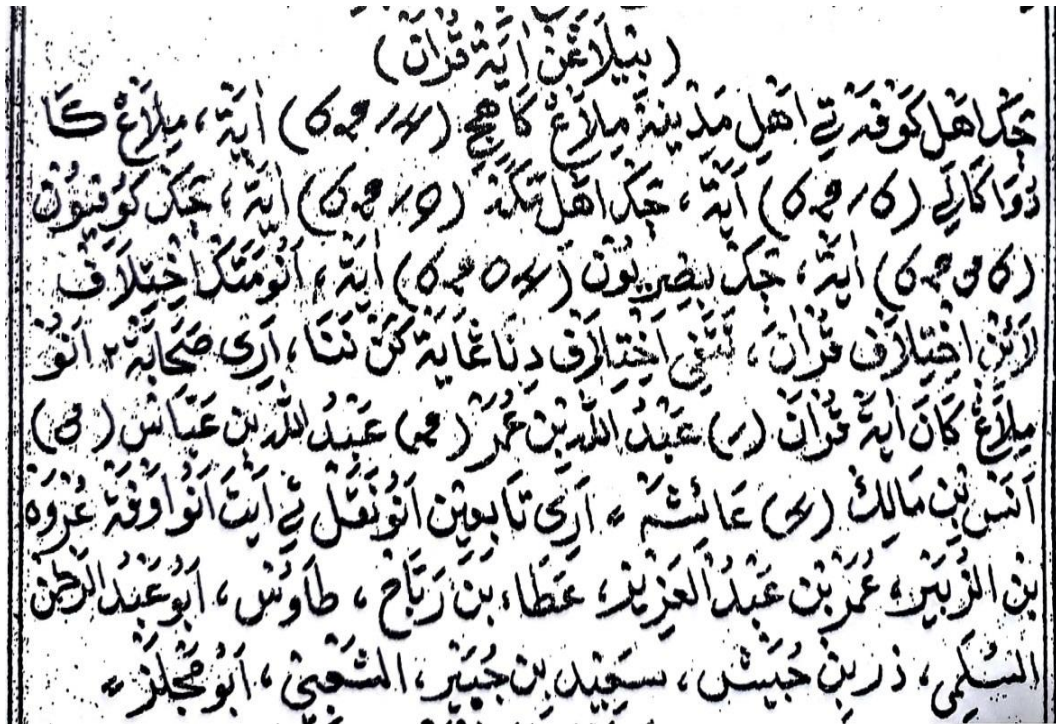 (بِيْلاَغَنْ اٰيَةْ قُرْاٰنْ)
جَكَ اَهْلِ كُوْفَةْ تِي اَهْلِ مَدِيْنَةْ مِيْلاَغْ كَاهِجِ (6214) اٰيَةْ، مِيْلاَغْ كَا
دُوَا كَالِي (6216) اٰيَةْ، جَكَ اَهْلِ مَكَّةْ (6219) اٰيَةْ، جَكَ كُوْفِيُّوْنْ
(6236) اٰيَةْ، جَكَ بَصْرِيُّوْنْ (6204) اٰيَةْ، اَنُو مَتَكْ اِخْتِلاَفْ
لَائِنْ اِخْتِلاَفْ قُرْاٰنْ، اِخْتِلاَفْ دِنَا غَايَةْ، اَرِي صَحَابَةْ٢ اَنُو
مِيْلاَغْ كَانَ اٰيَةْ قُرْاٰنْ (1) عَبْدُ اللهِ بِنْ عُمَرْ (2) عَبْدُ اللهِ بِنْ عَبَّاسْ (3)
اَنَسْ بِنْ مَالِكْ (4) عَائِشَةْ = اَرِي تَابِعِيْنْ اَنُو نَقَلْ تِي اَيْتَ اَنُو اَوْفَةْ عُرْوَةْ
بِنِ الزُّبَيْرِ، عُمَرْ بِنْ عَبْدُ الْعَزِيْزِ، عَطَاءْ بِنْ رَبَّاحْ، طَاوُسْ، اَبُوْ عَبْدُ الرَّحْمٰنْ
السُّلَمِي، ذَرْ بِنْ حُبَيْشْ، سَعِيْدْ بِنْ جُبَيْر، الشَّعْبِيْ، اَبُوْ مَجْلَزْ =